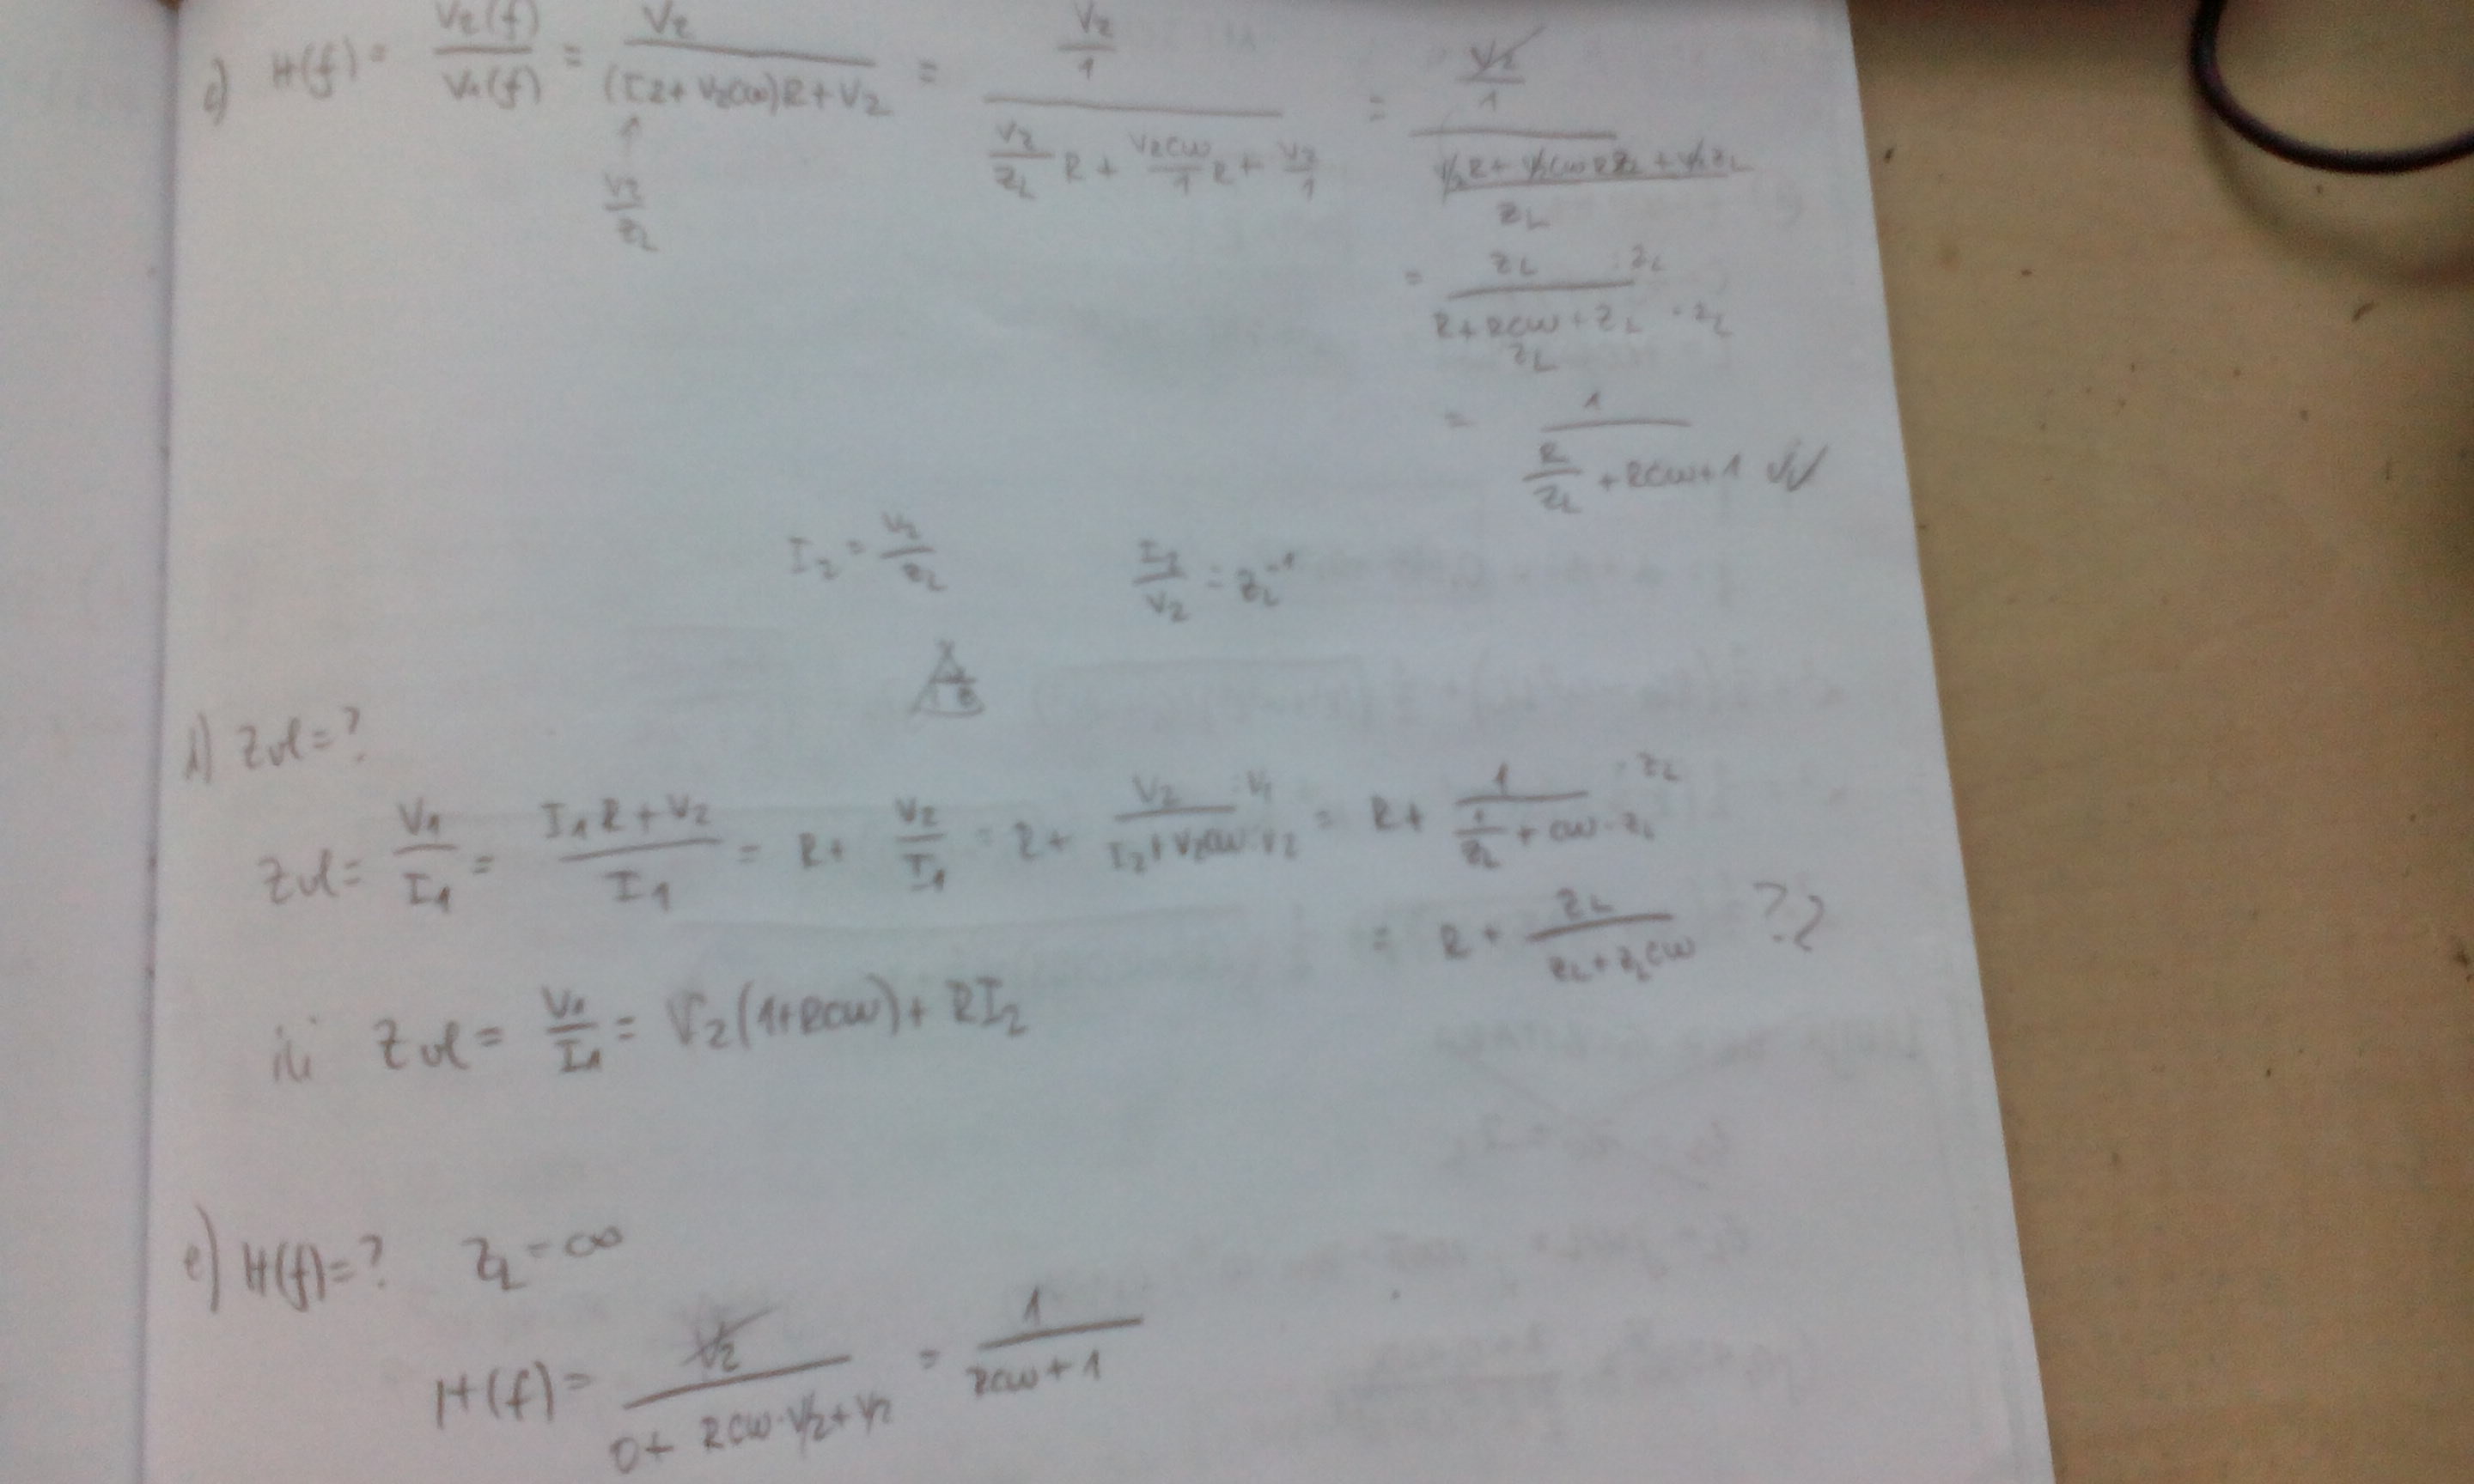 c) H(f) = V2(f)/V1(f) = V2/((I2 + V2cω)R + V2) = (V2/1)/(V2/ZL R + V2cω/1 R + V2/1) = (V2/1)/((V2R + V2cωRZL + V2ZL)/ZL)
↑
V2/ZL
= ZL :ZL/(R + RcωZL + ZL :ZL)
= 1/(R/ZL + Rcω + 1) √√
I2 = V2/ZL I2/V2 = ZL^-1
Zul = ?
Zul = V1/I1 = (I1R + V2)/I1 = R + V2/I1 = R + V2/(I2 + V2cω :V2) = R + 1/(1/ZL + cω · ZL) · ZL
= R + ZL/(ZL + ZLcω) ??
ili Zul = V1/I1 = V2(1+Rcω) + RI2
e) H(f) = ? ZL = ∞
H(f) = V2/(0 + Rcω·V2 + V2) = 1/(Rcω + 1)